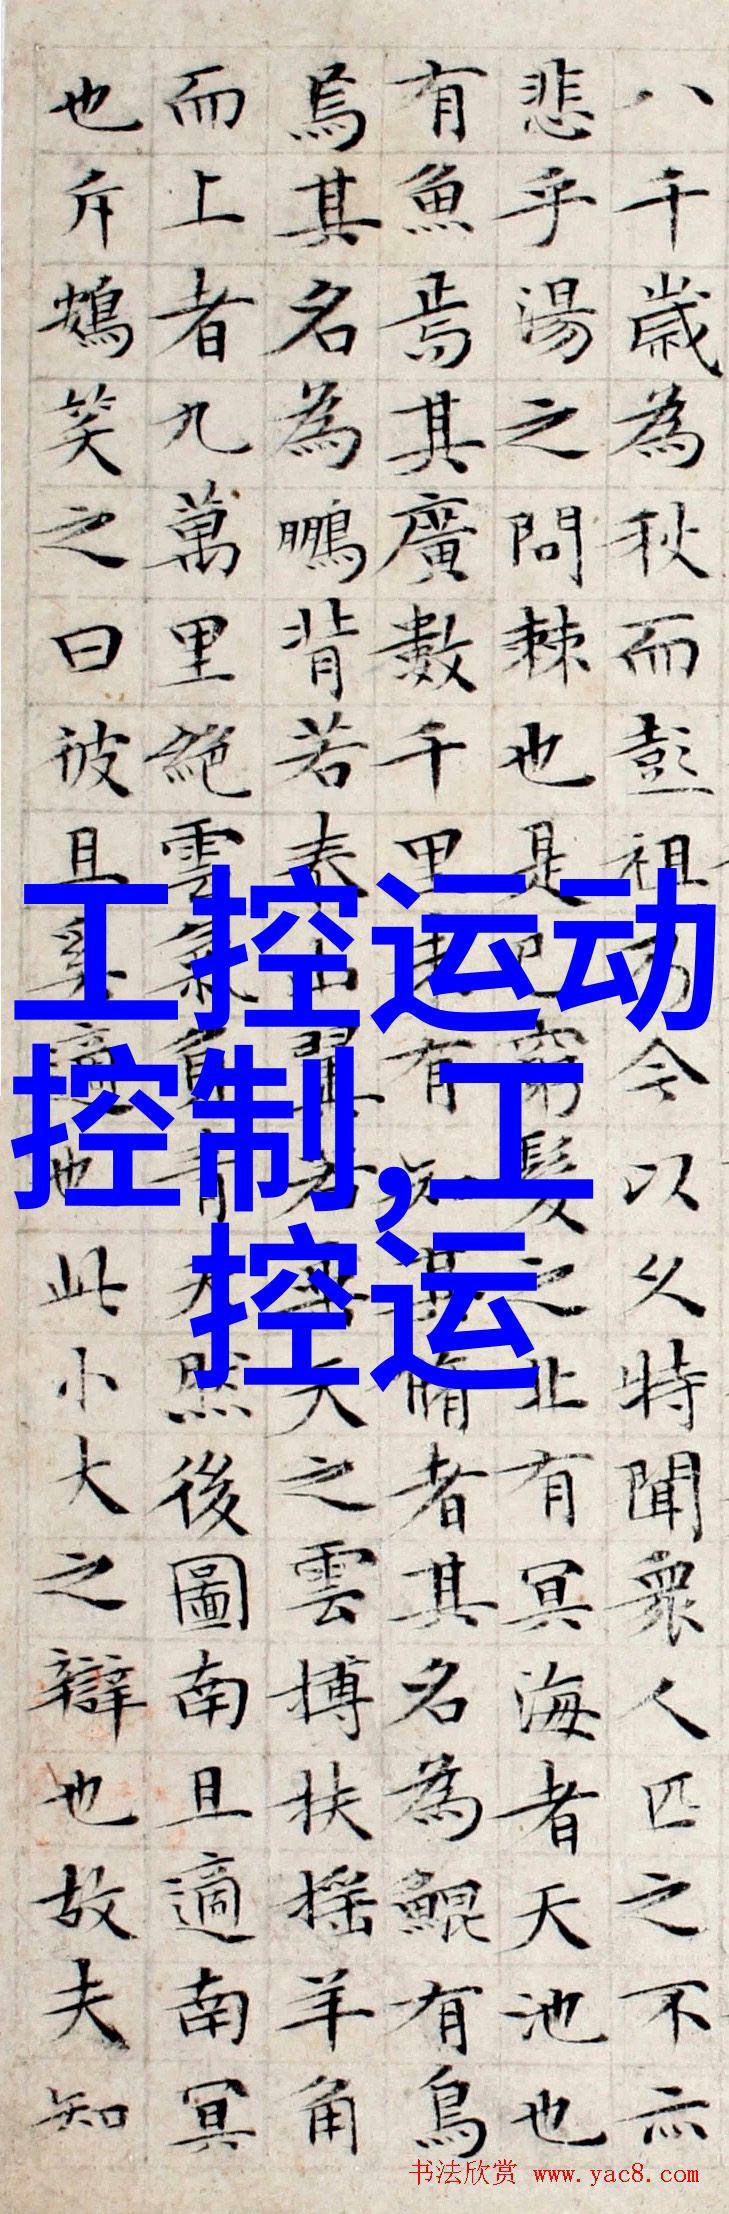 八千歲為秋而彭祖乃今以久特聞衆人匹之不亦
悲乎湯之問棘也是已窮髮之北有冥海者天池也
有魚焉其廣數千里未有知其脩者其名為鯤有鳥
焉其名為鵬背若泰山翼若垂天之雲搏扶摇羊角
而上者九萬里絕雲氣負青天然後圖南且適南冥
也斥鴳笑之曰彼且奚適也此小大之辯也故夫知
工控运动
控制,工
控运
书法欣赏 www.yac8.com